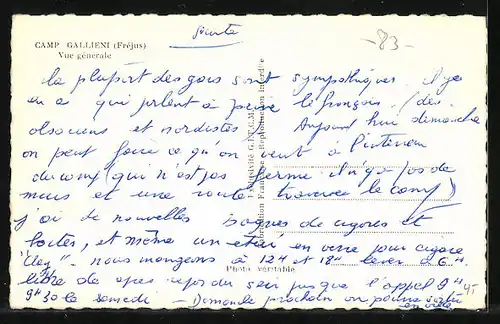 suite
-83-
CAMP GALLIENI (Fréjus)
Vue générale
la plupart des gars sont sympathiques il y
en a qui parlent à peine le français. (des
alsaciens et nordistes Aujourd'hui dimanche
on peut faire ce qu'on veut à l'interieur
du camp (qui n'est pas fermé il n'y a pas de
murs et une route traverse le camp)
j'ai de nouvelles bagues de cigares et
boites, et même un étui en verre pour cigare
nous mangeons à 12H et 18H lever à 6H
libre de apres repas du soir jusque l'appel 9H
9H30 le samedi - Dimanche prochain on pourra sortir
en ville
Photo véritable
45